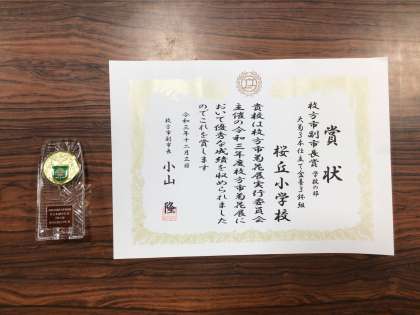 賞状
枚方市副市長賞 学校の部
大菊３本仕立て全善３鉢組
桜丘小学校
貴校は枚方市菊花展実行委員会
主催の令和三年度枚方市菊花展に
おいて優秀な成績を収められました
のでこれを賞します
令和三年十二月三日
枚方市副市長
小山 隆